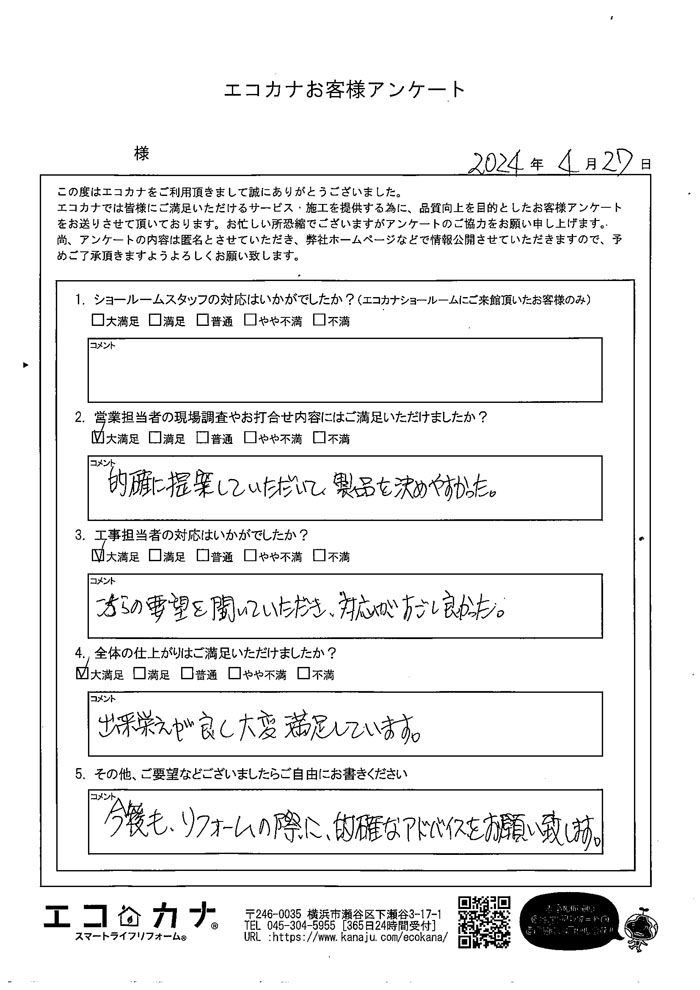 エコカナお客様アンケート
様
2024 年 4 月 27 日
この度はエコカナをご利用頂きまして誠にありがとうございました。
エコカナでは皆様にご満足いただけるサービス・施工を提供する為に、品質向上を目的としたお客様アンケート
をお送りさせて頂いております。お忙しい所恐縮でございますがアンケートのご協力をお願い申し上げます。
尚、アンケートの内容は匿名とさせていただき、弊社ホームページなどで情報公開させていただきますので、予
めご了承頂きますようよろしくお願い致します。
1. ショールームスタッフの対応はいかがでしたか？(エコカナショールームにご来館頂いたお客様のみ)
□大満足 □満足 □普通 □やや不満 □不満
コメント
2. 営業担当者の現場調査やお打合せ内容にはご満足いただけましたか？
☑大満足 □満足 □普通 □やや不満 □不満
コメント
的確に提案していただいて、製品を決めやすかった。
3. 工事担当者の対応はいかがでしたか？
☑大満足 □満足 □普通 □やや不満 □不満
コメント
こちらの要望を聞いていただき、対応がすごく良かった。
4. 全体の仕上がりはご満足いただけましたか？
☑大満足 □満足 □普通 □やや不満 □不満
コメント
出来栄えが良く大変満足しています。
5. その他、ご要望などございましたらご自由にお書きください
コメント
今後も、リフォームの際に、的確なアドバイスをお願い致します。
エコカナ®
スマートライフリフォーム®
〒246-0035 横浜市瀬谷区下瀬谷3-17-1
TEL 045-304-5955 [365日24時間受付]
URL :https://www.kanaju.com/ecokana/